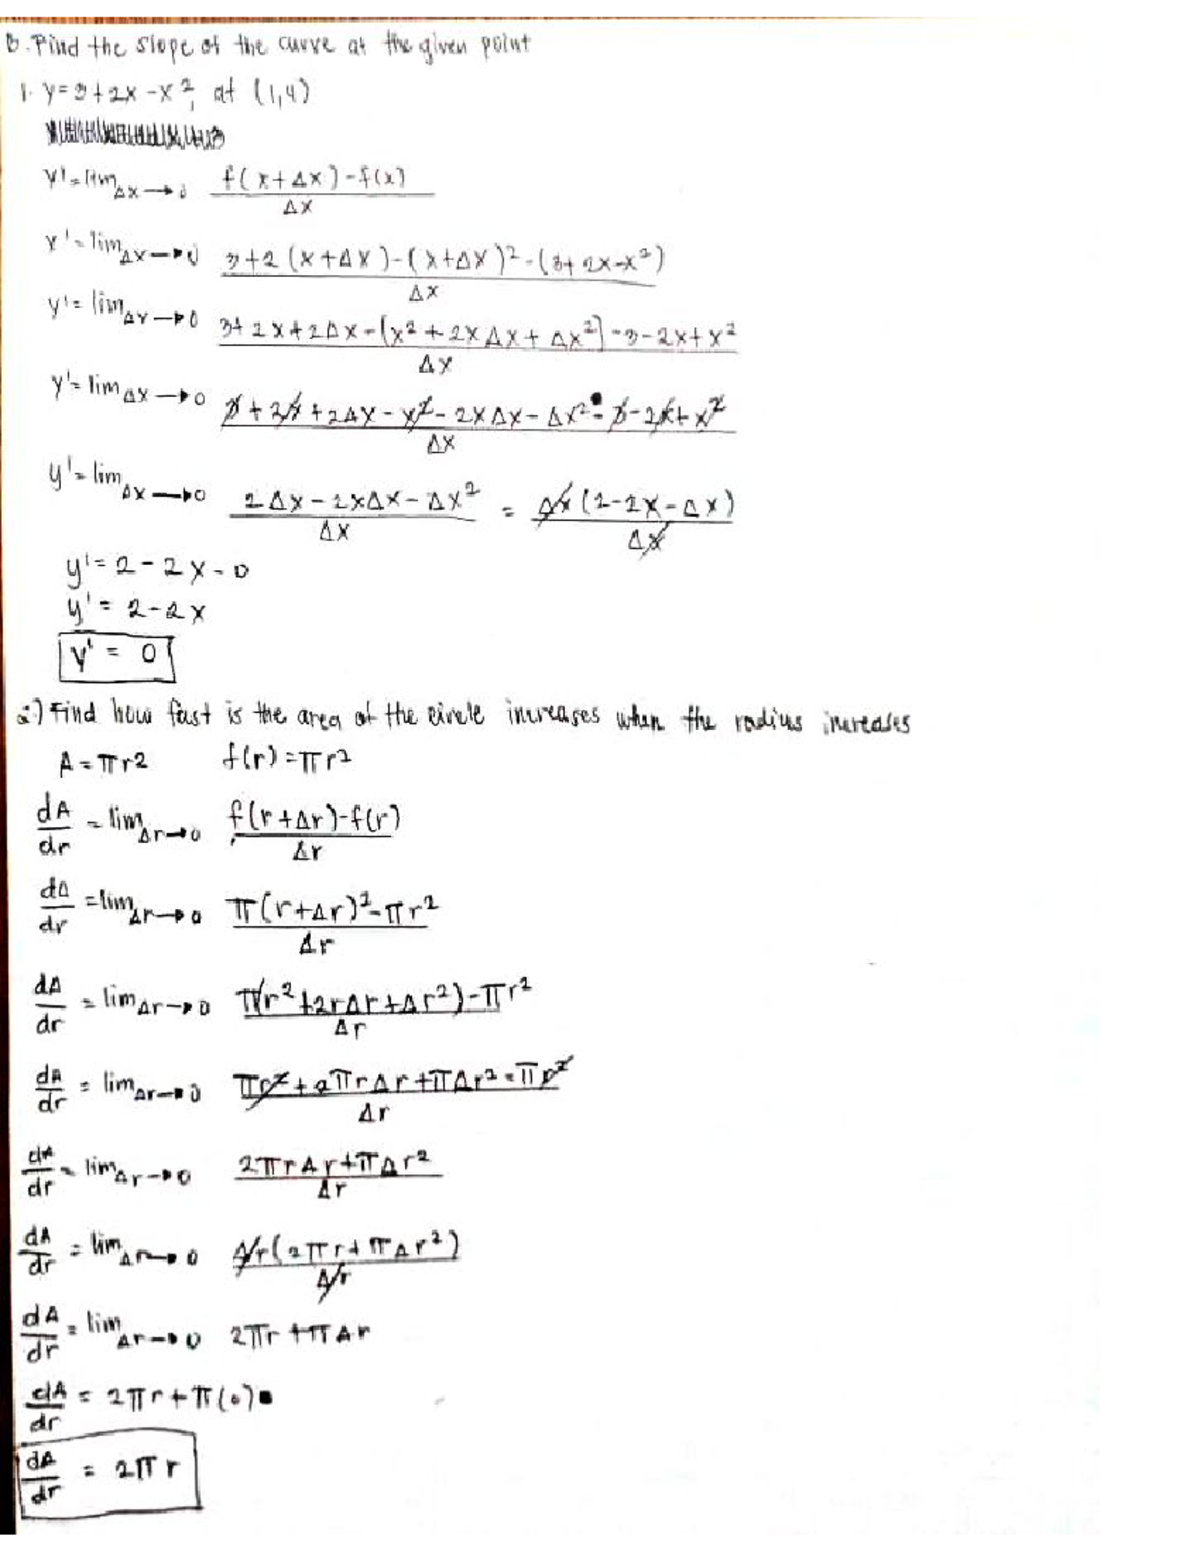 B. Find the slope of the curve at the given point
1. y = 3 + 2x - x², at (1,4)
y' = lim Δx→0 f(x+Δx)-f(x) / Δx
y' = lim Δx→0 3+2(x+Δx)-(x+Δx)²-(3+2x-x²) / Δx
y' = lim Δx→0 3+2x+2Δx-(x²+2xΔx+Δx²)-3-2x+x² / Δx
y' = lim Δx→0 3+2x+2Δx-x²-2xΔx-Δx²-3-2x+x² / Δx
y' = lim Δx→0 2Δx-2xΔx-Δx² / Δx = Δx(2-2x-Δx) / Δx
y' = 2-2x-0
y' = 2-2x
y' = 0
2.) Find how fast is the area of the circle increases when the radius increases
A = πr2 f(r) = πr²
dA/dr = lim Δr→0 f(r+Δr)-f(r) / Δr
dA/dr = lim Δr→0 π(r+Δr)²-πr² / Δr
dA/dr = lim Δr→0 π(r²+2rΔr+Δr²)-πr² / Δr
dA/dr = lim Δr→0 πr²+2πrΔr+πΔr²-πr² / Δr
dA/dr = lim Δr→0 2πrΔr+πΔr² / Δr
dA/dr = lim Δr→0 Δr(2πr+πΔr²) / Δr
dA/dr = lim Δr→0 2πr+πΔr
dA/dr = 2πr+π(0)
dA/dr = 2πr